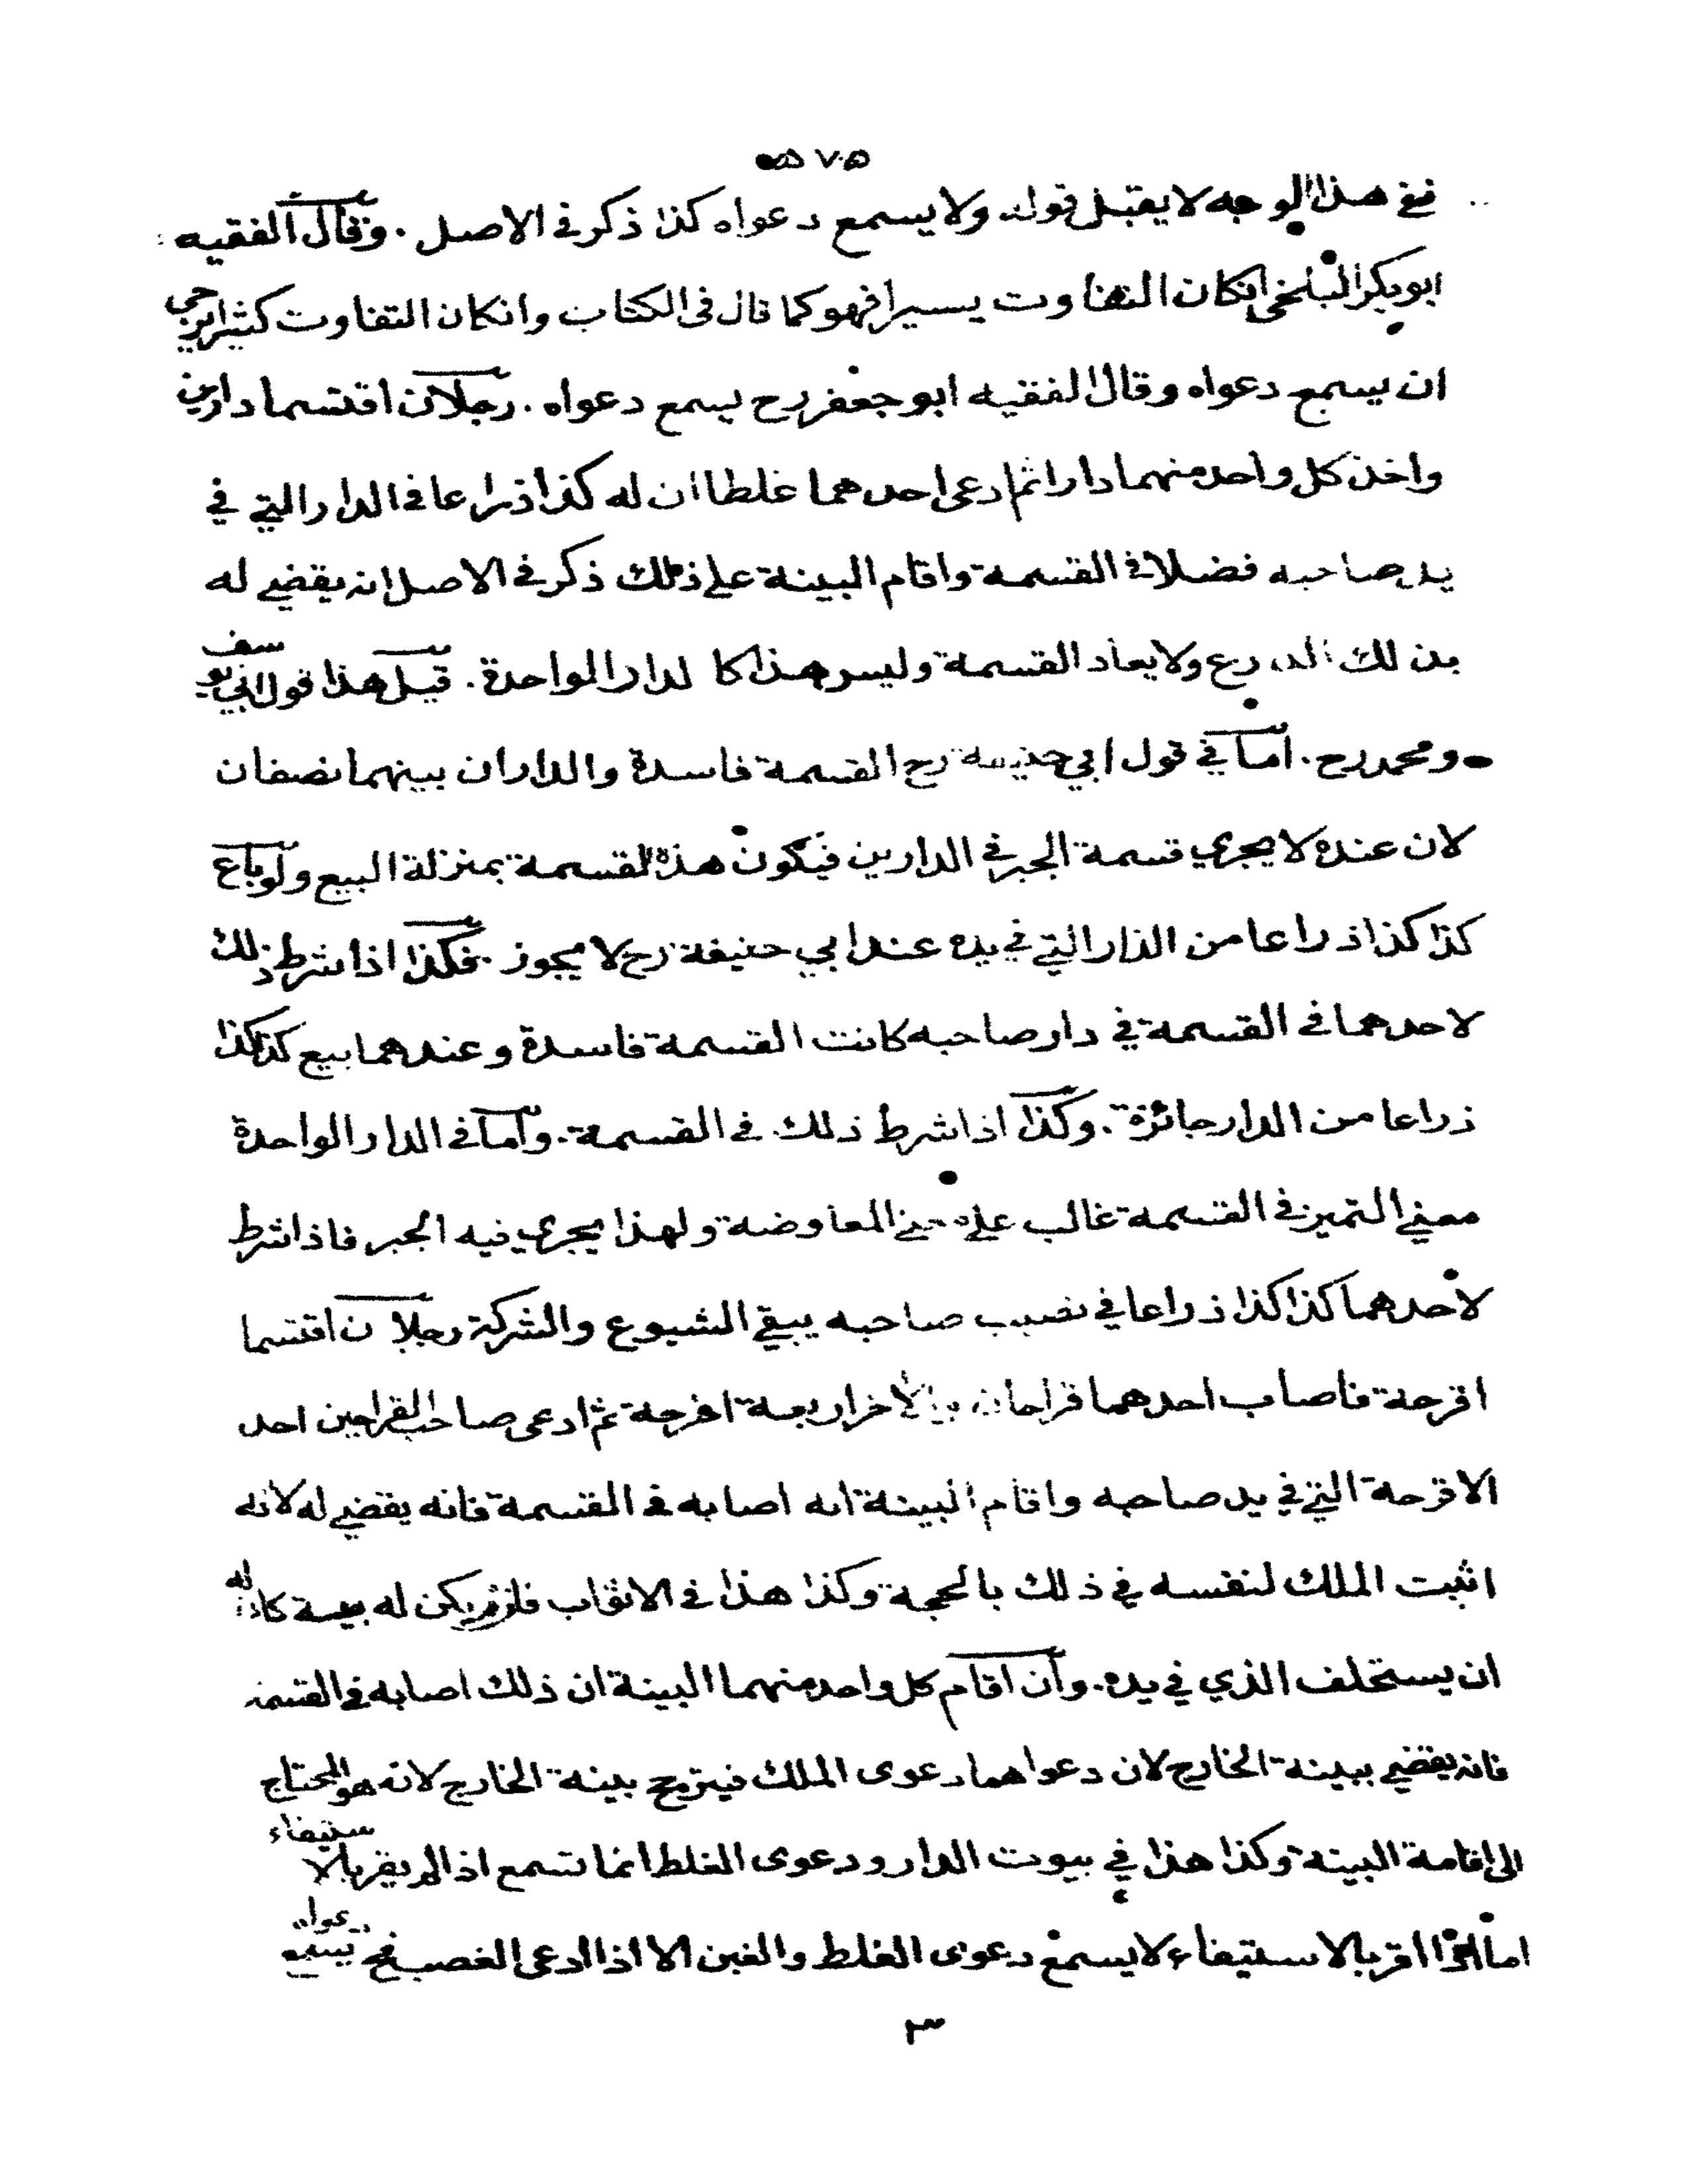 ٥٧٠
ففى هذا الوجه لا يقبل قوله ولا يسمع دعواه كذا ذكر فى الاصل . وقال الفقيه
ابو بكر البلخى انكان التفاوت يسيرا فهو كما قال فى الكتاب وانكان التفاوت كثيرا
ان يسمع دعواه وقال الفقيه ابو جعفر رح يسمع دعواه . رجلان اقتسما دارين
واخذ كل واحد منهما دارا ثم ادعى احدهما غلطا ان له كذا ذراعا فى الدار التي في
يد صاحبه فضلا فى القسمة واقام البينة على ذلك ذكر فى الاصل انه يقضي له
بذلك الذرع ولا يعاد القسمة وليس هذا كا لدار الواحدة . قيل هذا قول ابي يوسف
ومحمد رح . اما في قول ابي حنيفة رح القسمة فاسدة والداران بينهما نصفان
لان عنده لا يجري قسمة الجبر فى الدارين فيكون هذه القسمة بمنزلة البيع ولو باع
كذا كذا ذراعا من الدار التي في يده عند ابي حنيفة رح لا يجوز . فكذا اذا شرط ذلك
لاحدهما فى القسمة في دار صاحبه كانت القسمة فاسدة وعندهما بيع كذا كذا
ذراعا من الدار جائزة . وكذا اذا شرط ذلك في القسمة . واما فى الدار الواحدة
معني التميز فى القسمة غالب على معني المعاوضة ولهذا يجري فيه الجبر فاذا شرط
لاحدهما كذا كذا ذراعا في نصيب صاحبه يبقي الشيوع والشركة رجلان اقتسما
اقرحة فاصاب احدهما قراحان والاخر اربعة اقرحة ثم ادعى صاحب القراحين احد
الاقرحة التي في يد صاحبه واقام البينة انه اصابه فى القسمة فانه يقضي له لانه
اثبت الملك لنفسه في ذلك بالحجة وكذا هذا في الاثواب فلو لم يكن له بينة كان له
ان يستحلف الذي في يده . وان اقام كل واحد منهما البينة ان ذلك اصابه فى القسمة
فانه يقضي ببينة الخارج لان دعواهما دعوى الملك فيترجح بينة الخارج لانه هو المحتاج
الى اقامة البينة وكذا هذا في بيوت الدار ودعوى الغلط انما تسمع اذا لم يقر بالاستيفاء
اما اذا اقر بالاستيفاء لا يسمع دعوى الغلط والغبن الا اذا ادعى الغصب فح تسمع دعواه
٣